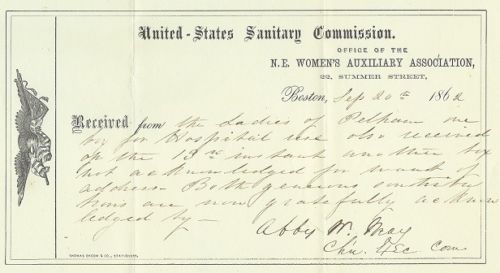 United-States Sanitary Commission.
OFFICE OF THE
N.E. WOMEN'S AUXILIARY ASSOCIATION,
22, SUMMER STREET,
Boston, Sep 20th 1862
Received from the Ladies of Pelham one
box for Hospital use also received
on the 13th instant another box
not acknowledged for want of
address Both generous contribu
tions are now gratefully acknow
ledged by —
Abby W. May
Chn. Exec Com
THOMAS GROOM & CO., STATIONERS,